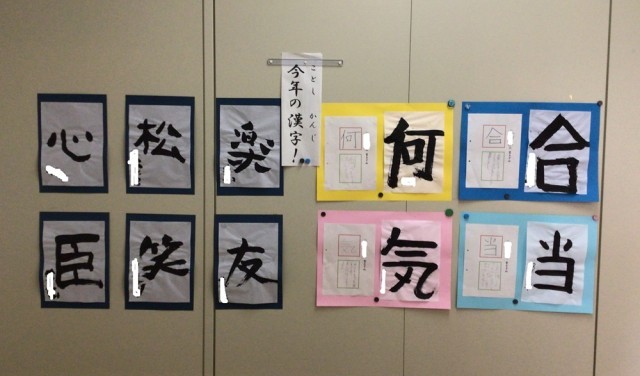 今年の漢字!
ことし かんじ
心
松
楽
何
何
合
合
臣
笑
友
気
当
当